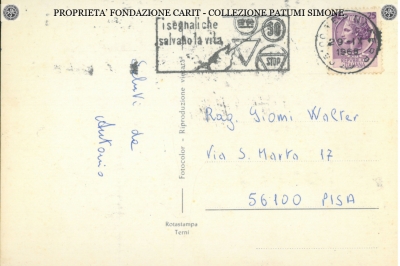 PROPRIETA' FONDAZIONE CARIT - COLLEZIONE PATUMI SIMONE
i segnali che
salvano la vita
30
STOP
1968
Saluti da
Antonio
Fotocolor - Riproduzione vietata
Rotostampa
Terni
Rag. Giomi Walter
Via S. Marta 17
56100 PISA